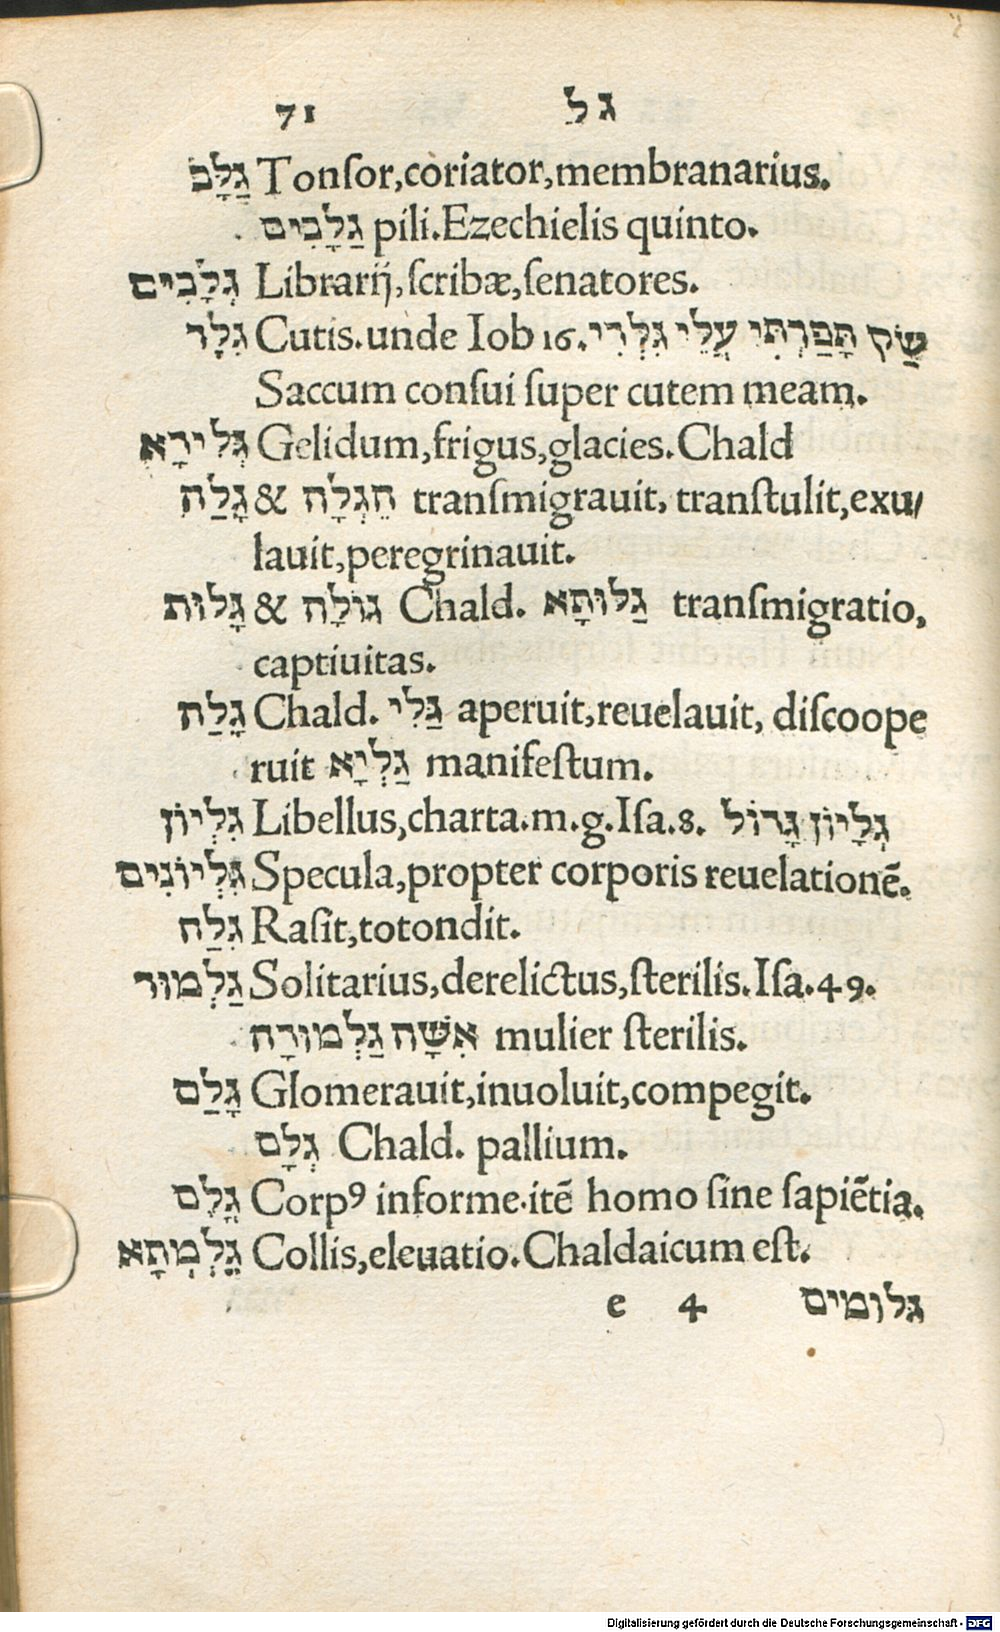 71 ג ל
גַּלָּב Tonſor,coriator,membranarius.
גַּלָּבִים pili.Ezechielis quinto.
גְּלָבִים Librarij,ſcribæ,ſenatores.
גִּלָד Cutis.unde Iob 16. שַׂק תָּפַרְתִּי עֲלֵי גִּלְדִּי
Saccum conſui ſuper cutem meam.
גְּלִידָא Gelidum,frigus,glacies.Chald
גָּלַה & הֵגְלָה transmigrauit, tranſtulit,exu/
lauit,peregrinauit.
גָּלוּת & גוֹלָה Chald. גַּלוּתָא tranſmigratio,
captiuitas.
גָּלַה Chald. גַּלִי aperuit,reuelauit, diſcoope
ruit גַּלְיָא manifeſtum.
גִּלְיוֹן Libellus,charta.m.g.Iſa.8. גְּלָיוֹן גָּדוֹל
גִּלְיוֹנִים Specula,propter corporis reuelationē.
גִּלַח Raſit,totondit.
גַּלְמוּד Solitarius,derelictus,ſterilis.Iſa.49.
אִשָּׁה גַּלְמוּדָה mulier ſterilis.
גָּלַם Glomerauit,inuoluit,compegit.
גְּלָם Chald. pallium.
גֶּלֶם Corpꝰ informe.itē homo ſine ſapiētia.
גֶּלְמְתָא Collis,eleuatio.Chaldaicum eſt.
e 4 גלומים
Digitalisierung gefördert durch die Deutsche Forschungsgemeinschaft - DFG